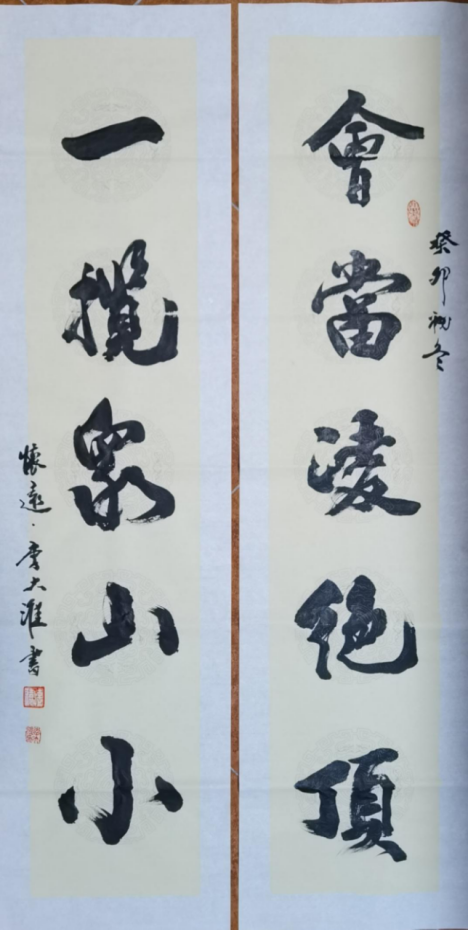 會當凌絕頂
癸卯初冬
一攬衆山小
懷遠·李大淮書